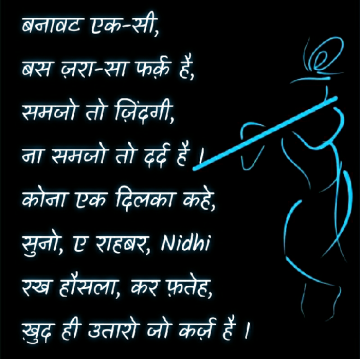 बनावट एक-सी,
बस ज़रा-सा फर्क़ है,
समजो तो ज़िंदगी,
ना समजो तो दर्द है !
कोना एक दिलका कहे,
सुनो, ए राहबर, Nidhi
रख हौसला, कर फ़तेह,
ख़ुद ही उतारो जो कर्ज़ है !